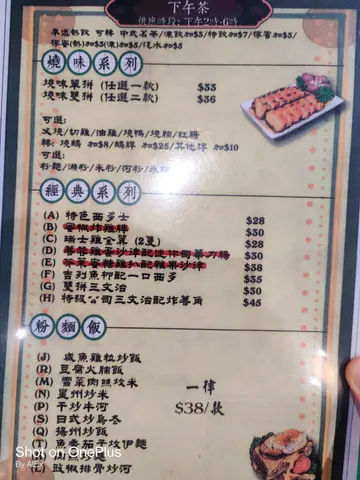 下午茶
供應時段: 下午2時-6時
早返熱飲 可轉 中式名茶/凍飲加$3/特飲加$7/保賓加$3/
保賓(熱)加$3(凍)加$5/汽水加$5
燒味系列
燒味單拼 (任選一款) $33
燒味雙拼 (任選二款) $36
可選:
叉燒/切雞/油雞/燒鴨/燒腩/紅腸
轉: 燒鵝 加$8/鵝脾 加$25/其他脾 加$10
可選:
粉麵/瀨粉/米粉/河粉/米線
經典系列
(A) 特色西多士 $28
(B) 蜜椒炸雞脾 $30
(C) 瑞士雞全翼 (2隻) $28
(D) $30
(E) $38
(F) 吉列魚柳配一口西多 $35
(G) 雙拼三文治 $30
(H) 特級公司三文治配炸薯角 $45
粉麵飯
(J) 咸魚雞粒炒飯
(R) 豆腐火腩飯
(M) 雪菜肉絲炆米
(N) 星州炒米
(P) 干炒牛河
(S) 日式炒烏冬
(Q) 揚州炒飯
(T) 魚香茄子炆伊麵
豉椒排骨炒河
一律
$38/款
Shot on OnePlus